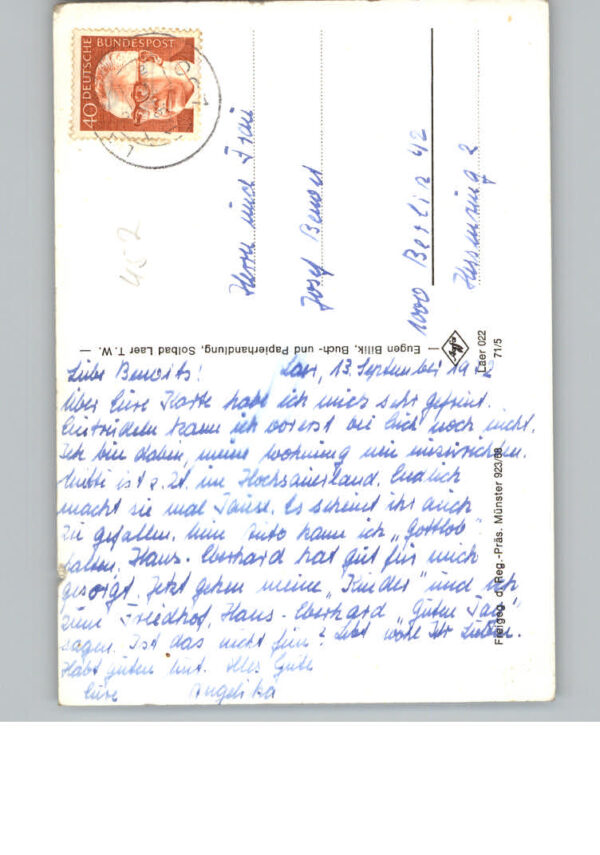 DEUTSCHE
BUNDESPOST
40
457
Herrn und Frau
Josef
1000 Berlin 42
2
— Eugen Billik, Buch- und Papierhandlung, Solbad Laer T.W. —
Laer 022
71/5
Freigeg. d. Reg.-Präs. Münster 923/68
Liebe
Laer, 13. September 19
Über Eure Karte habe ich mich sehr gefreut.
kann ich vorerst bei Euch noch nicht.
Ich bin dabei, meine Wohnung neu einzurichten.
Mutti ist z. Zt. im Hochsauerland. Endlich
macht sie mal Pause. Es scheint ihr auch
zu gefallen. Mein Auto kann ich „Gottlob"
halten. Hans-Eberhard hat gut für mich
gesorgt. Jetzt gehen meine „Kinder" und ich
zum Friedhof, Hans-Eberhard „Guten Tag"
sagen. Ist das nicht fein? Lebt wohl Ihr Lieben.
Habt guten Mut. Alles Gute
Eure Angelika